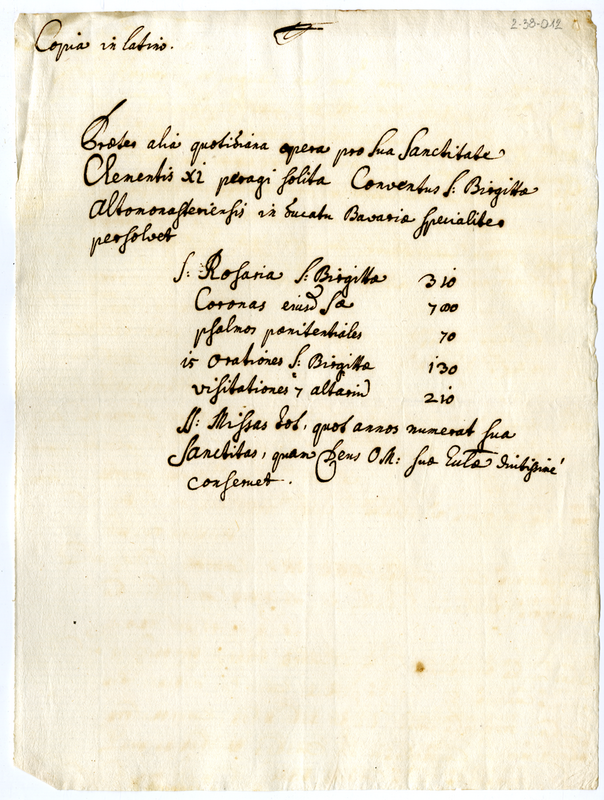 2-38-012
Copia in latino.
Præter alia quotidiana opera pro sua Sanctitate
Clementis XI peragi solita Conventus S: Birgittæ
Altomonasteriensis in Ducatu Bavariæ specialiter
persolvet
S: Rosaria S: Birgittæ 310
Coronas eiusd Sæ 700
psalmos pænitentiales 70
15 Orationes S: Birgittæ 130
visitationes 7 altariũ 210
SS: Missas tot, quot annos numerat sua
Sanctitas, quam Deus O.M: suæ Ecclæ diutissimé
conservet.